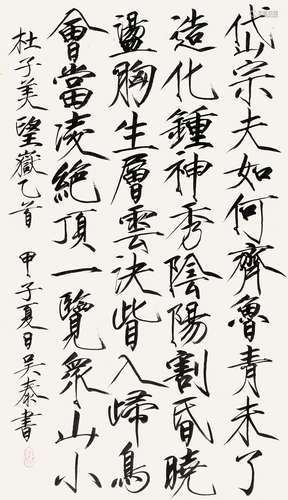 岱宗夫如何齊魯青未了
造化鍾神秀陰陽割昏曉
盪胸生層雲決眥入歸鳥
會當凌絕頂一覽衆山小
杜子美望嶽乙首 甲子夏日吳泰書